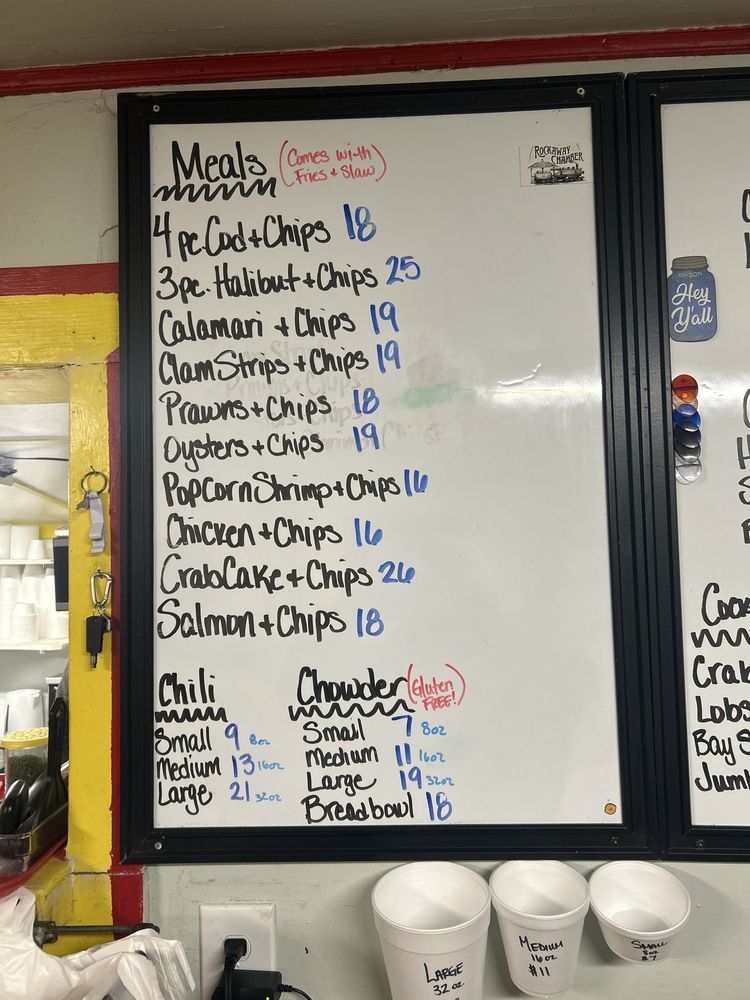 Meals (Comes with
Fries + Slaw)
ROCKAWAY
CHAMBER
4 pc. Cod + Chips 18
3 pc. Halibut + Chips 25
Calamari + Chips 19
Clam Strips + Chips 19
Prawns + Chips 18
Oysters + Chips 19
Popcorn Shrimp + Chips 16
Chicken + Chips 16
Crab Cake + Chips 26
Salmon + Chips 18
Chili
Small 9 8oz
Medium 13 16oz
Large 21 32oz
Chowder (Gluten
FREE!)
Small 7 8oz
Medium 11 16oz
Large 19 32oz
Breadbowl 18
MASON
Hey
Y'all
Crab
Bay S
LARGE
32 oz
MEDIUM
16 oz
#11
SMALL
8oz
#7